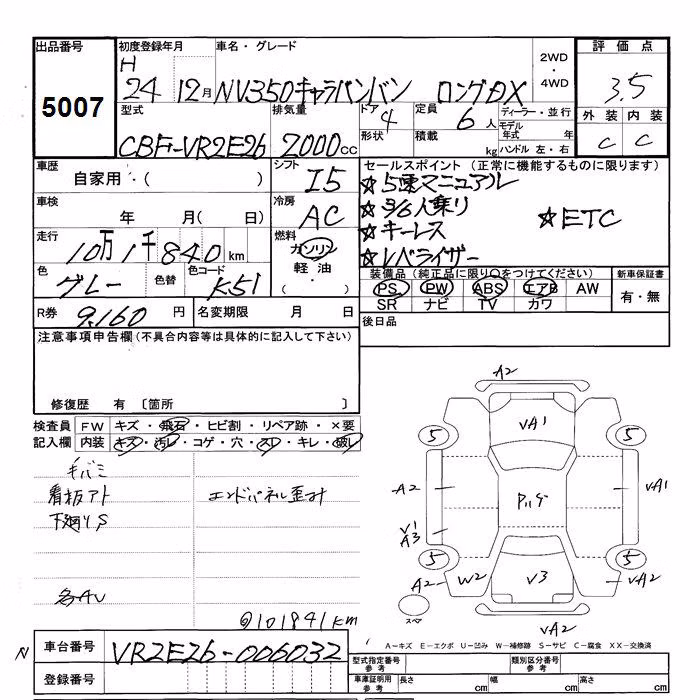 出品番号 初度登録年月 車名・グレード 2WD 4WD 評価点
5007 H 24 12月 NV350キャラバンバン ロングDX 3.5
型式 排気量 ドア 4 定員 6人 ディーラー・並行 外装 内装
CBF-VR2E26 2000cc 形状 積載 kg モデル年式 年 ハンドル 左・右 C C
車歴 自家用・( ) シフト I5 セールスポイント(正常に機能するものに限ります)
☆5速マニュアル
車検 年 月( 日) 冷房 AC ☆3/6人乗り ☆ETC
☆キーレス
走行 10万1千840km 燃料 ガソリン 軽油・( ) ☆レベライザー
色 グレー 色替 色コード K51 装備品(純正品に限り○をつけてください) 新車保証書
PS PW ABS エアB AW 有・無
SR ナビ TV カワ
R券 9,160円 名変期限 月 日 後日品
注意事項申告欄(不具合内容等は具体的に記入して下さい)
修復歴 有 〔箇所 〕
検査員 FW キズ・飛石・ヒビ割・リペア跡・×要
記入欄 内装 キズ・汚レ・コゲ・穴・スレ・キレ・破レ
モバミ
看板アト エンドパネル歪み
下廻りS
各AU
@101841km
A2
5 VA1 5
A2 Pルーフ VA1
V1
A3
5 5
A2 W2 V3 VA2
スペ VA2
A-キズ E-エクボ U-凹み W-補修跡 S-サビ C-腐食 XX-交換済
N 車台番号 VR2E26-006032 型式指定番号 参考 類別区分番号 参考
登録番号 車庫証明用 参考 長さ cm 幅 cm 高さ cm